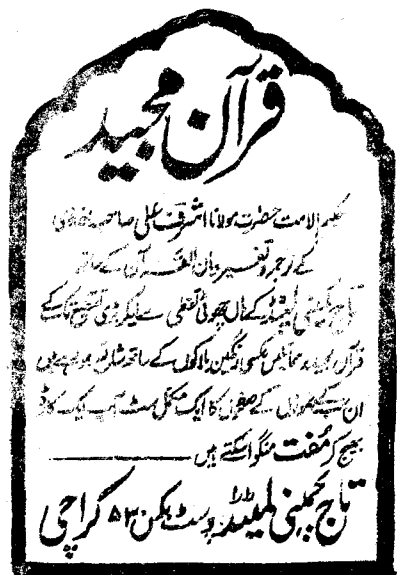 قرآن مجید
حکیم الامت حضرت مولانا اشرف علی صاحب تھانوی
کے ترجمہ و تفسیر بیان القرآن کے ساتھ
تاج کمپنی لمیٹڈ کے ہاں چھوٹی تقطیع سے لیکر بڑی تقطیع تک کے
قرآن مجید و حمائلیں عکسی رنگین بلاکوں کے ساتھ شائع ہوئے ہیں
ان سب کے نمونوں کے صفحوں کا ایک مکمل سٹ آپ ایک کارڈ
بھیج کر مفت منگوا سکتے ہیں
تاج کمپنی لمیٹڈ پوسٹ بکس ۵۳ کراچی